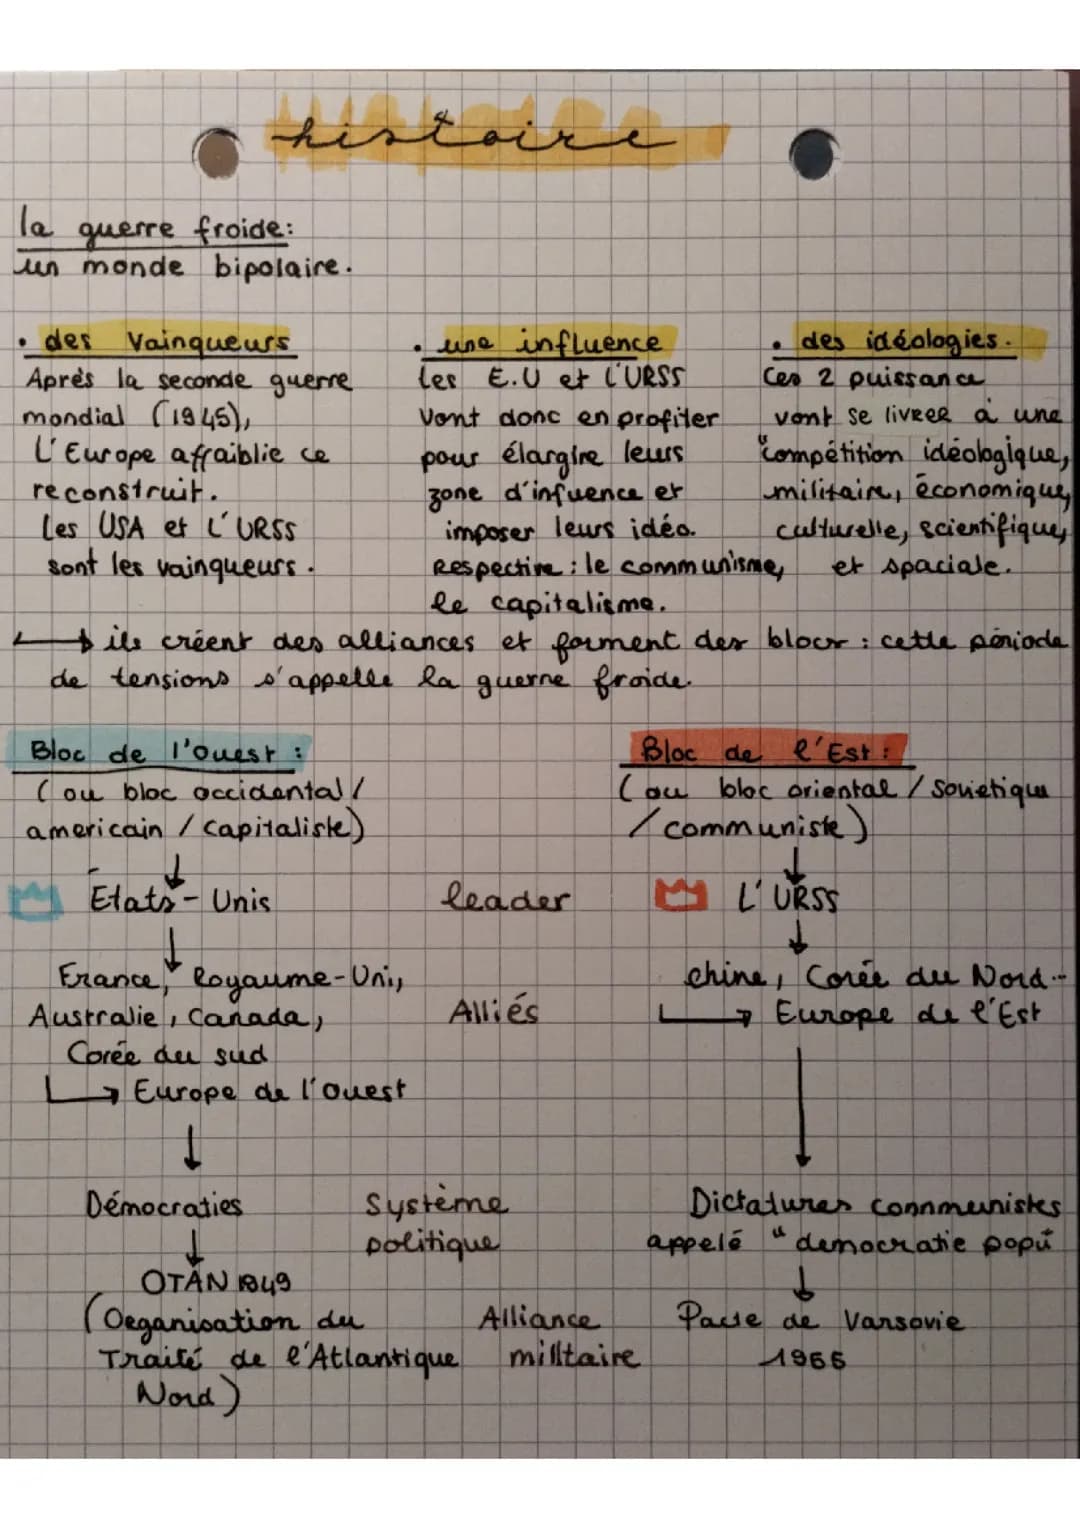 histoire
la guerre froide:
un monde bipolaire.
• des Vainqueurs
Après la seconde guerre
mondial (1945),
L'Europe affaiblie ce
reconstruit.
Les USA et L'URSS
sont les vainqueurs.
• une influence
Les E.U et L'URSS
Vont donc en profiter
pour élargire leurs
zone d'infuence et
imposer leurs idéo.
Respective : le communisme,
le capitalisme.
• des idéologies.
Ces 2 puissance
vont se livrer à une
"compétition idéologique,
militaire, économique,
culturelle, scientifique,
et spaciale.
↳ ils créent des alliances et forment des blocs : cette période
de tensions s'appelle la guerre froide.
Bloc de l'Ouest :
(ou bloc occidental /
americain / Capitaliste)
Bloc de l'Est :
(ou bloc oriental / Sovietique
/ communiste)
Etats-Unis leader L'URSS
France, Royaume-Uni,
Australie, Canada,
Corée du sud
↳ Europe de l'Ouest
Alliés
chine, Corée du Nord..
↳ Europe de l'Est
Démocraties
Système
politique
Dictatures connmunistes
appelé "democratie popu
OTAN 1949
(Organisation du
Traité de l'Atlantique
Nord)
Alliance
milltaire
de Varsovie